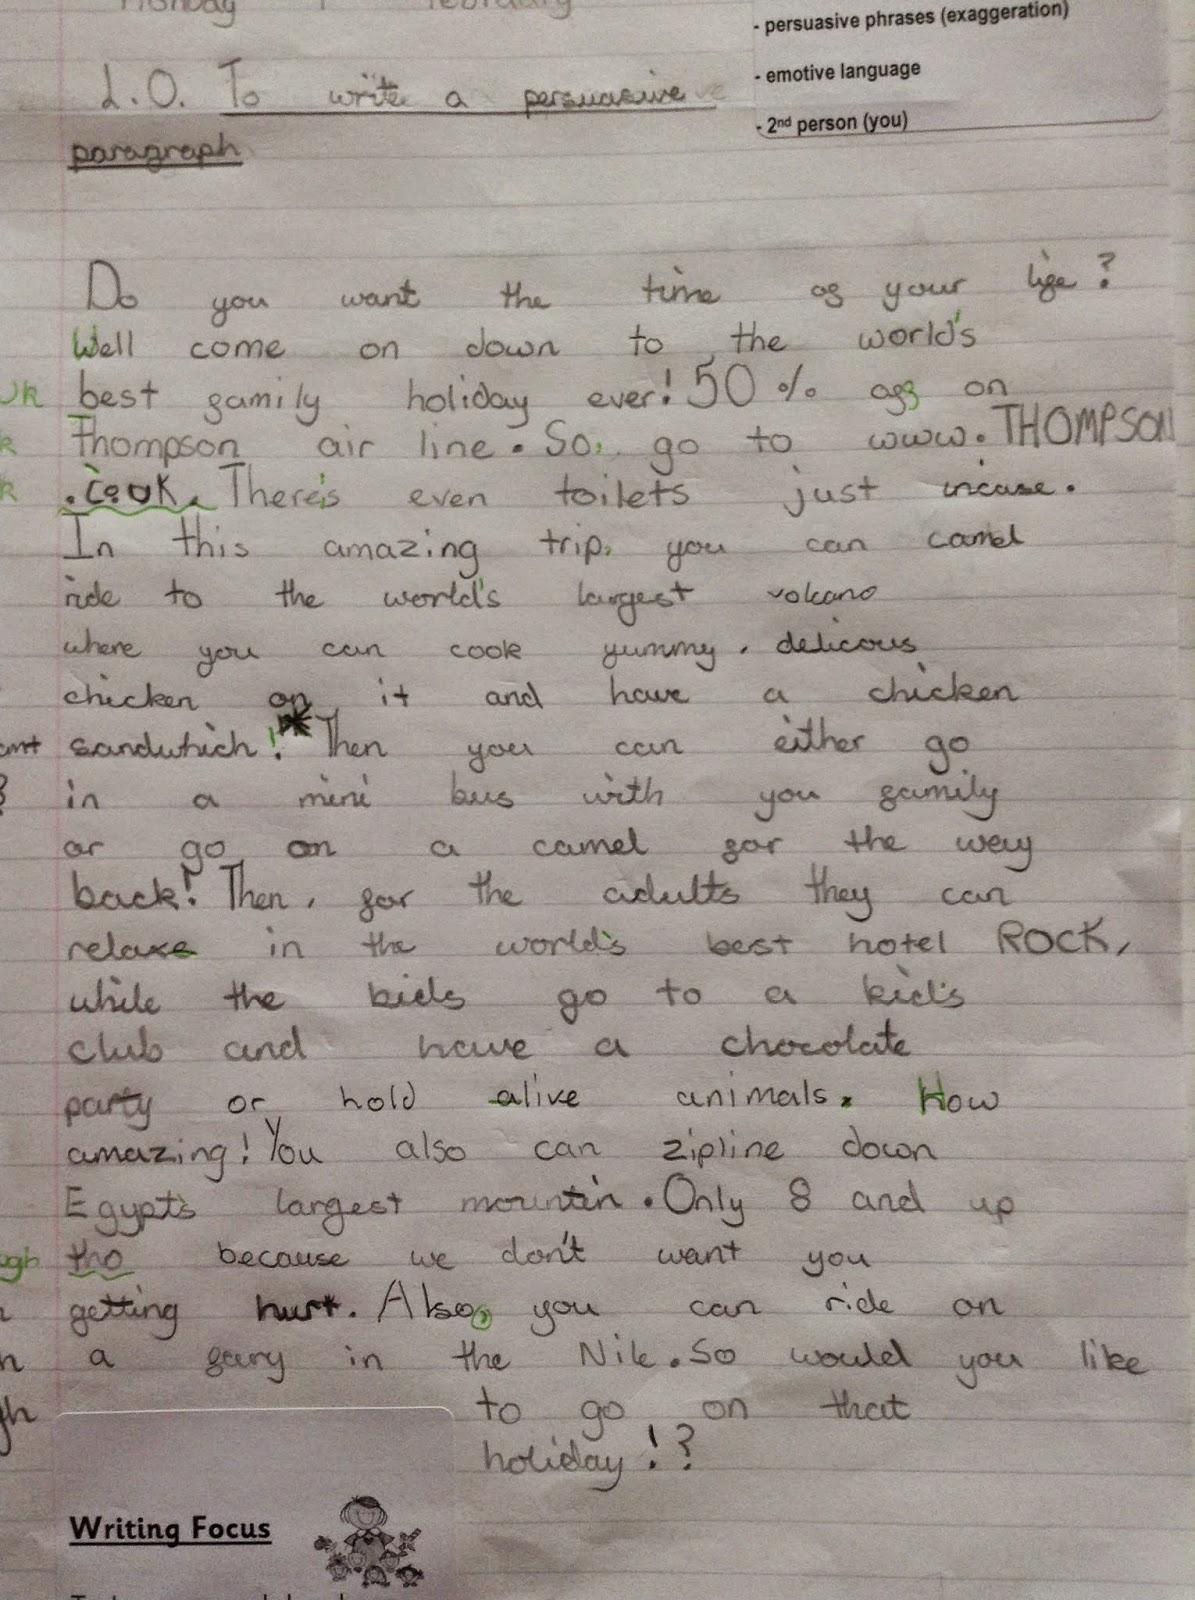 - persuasive phrases (exaggeration)
- emotive language
- 2nd person (you)
L.O. To write a persuasive
paragraph
Do you want the time of your life?
Well come on down to the world's
best family holiday ever! 50% off on
Thompson air line. So, go to www.THOMPSON
.cook. There's even toilets just incase.
In this amazing trip, you can camel
ride to the world's largest volcano
where you can cook yummy, delicous
chicken on it and have a chicken
sandwhich! * Then you can either go
in a mini bus with you family
or go on a camel for the way
back! Then, for the adults they can
relaxe in the world's best hotel ROCK,
while the kids go to a kid's
club and have a chocolate
party or hold alive animals. How
amazing! You also can zipline down
Egypt's largest mountin. Only 8 and up
tho because we don't want you
getting hurt. Also, you can ride on
a fery in the Nile. So would you like
to go on that
holiday!?
Writing Focus